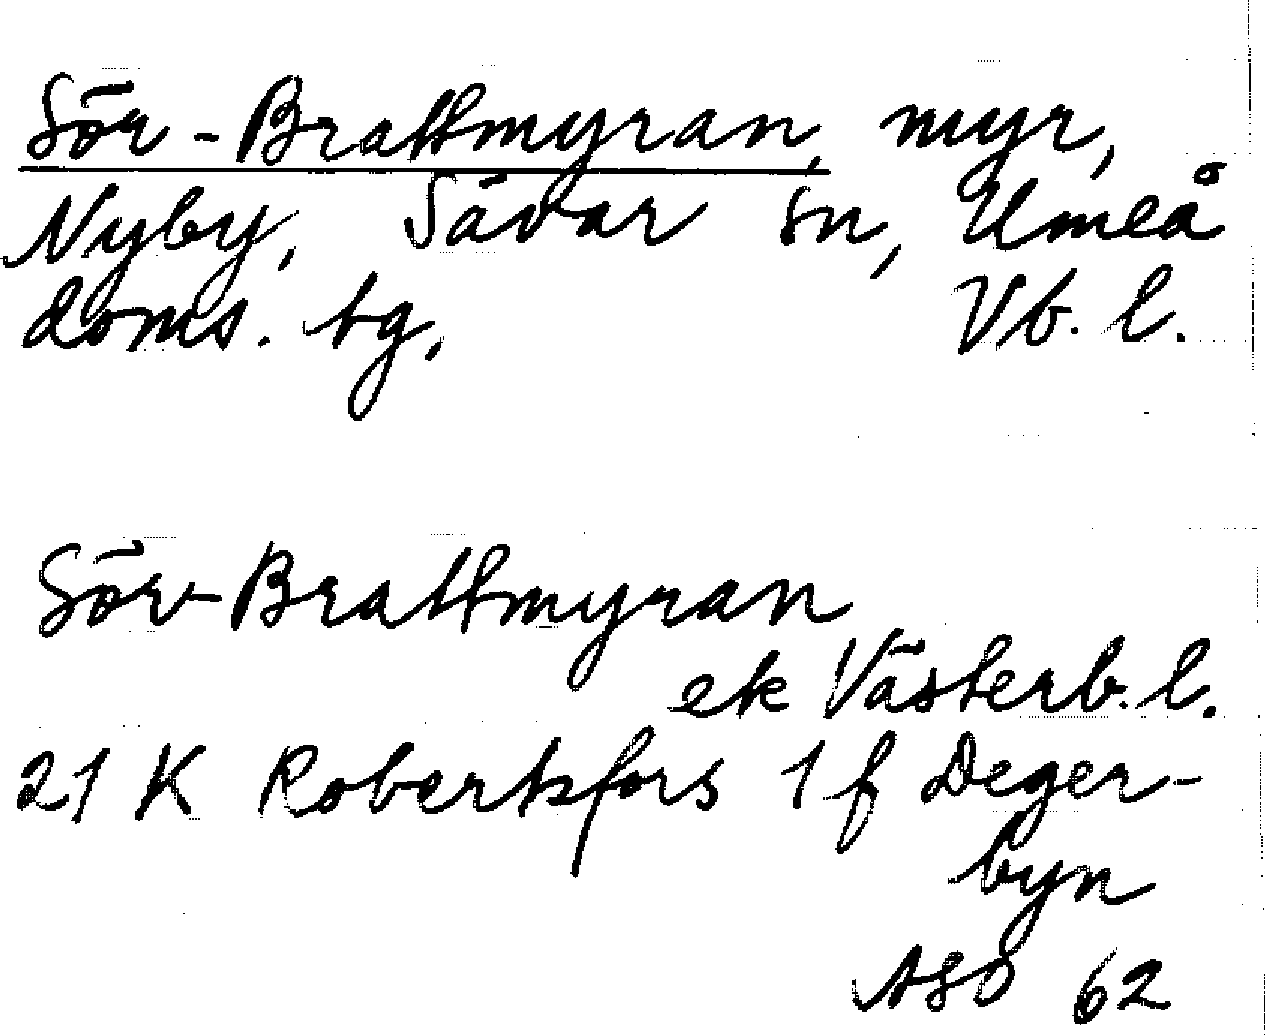 Sör-Brattmyran, myr,
Nyby, Sävar sn, Umeå
doms. tg. Vb. l.
Sör-Brattmyran
ek Västerb. l.
21 K Robertsfors 1 f Deger-
byn
ASO 62